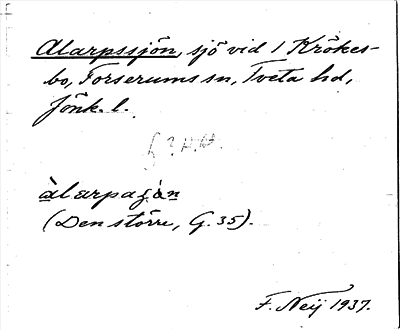 Alarpssjön, sjö vid 1 Krökes-
bo, Forserums sn, Tveta hd,
Jönk. l.
àlarpaʃö̀n
(Den större, G. 35).
F. Neij 1937.